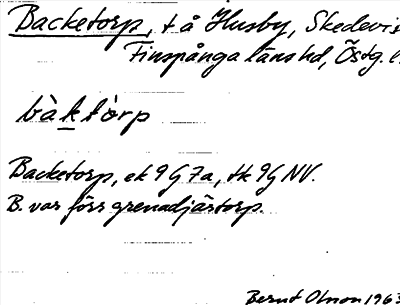 Backetorp, t å Husby, Skedevi
Finspånga läns hd, Östg. l
bàktòrp
Backetorp, ek 9G7a, tk 9G NV.
B. var förr grenadjärtorp.
Bernt Olsson 1963